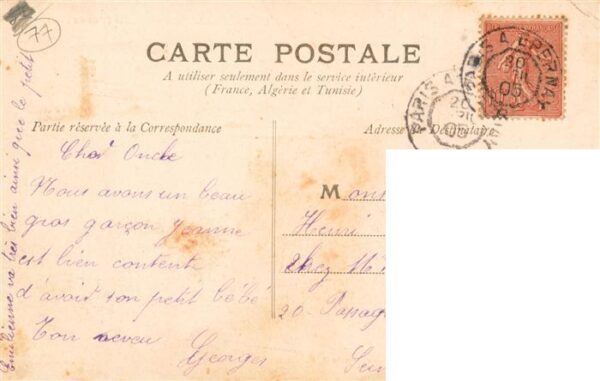 77
CARTE POSTALE
A utiliser seulement dans le service intérieur
(France, Algérie et Tunisie)
Partie réservée à la Correspondance
Adresse Destinataire
PARIS A EPERNAY
20
05
PARIS A
20
05
Cher Oncle
Nous avons un beau
gros garçon
est bien contente
d'avoir son petit bébé
Ton neveu
Georges
Emilienne va très bien ainsi que le petit
Mons
Henri
chez Mr
20 Passag